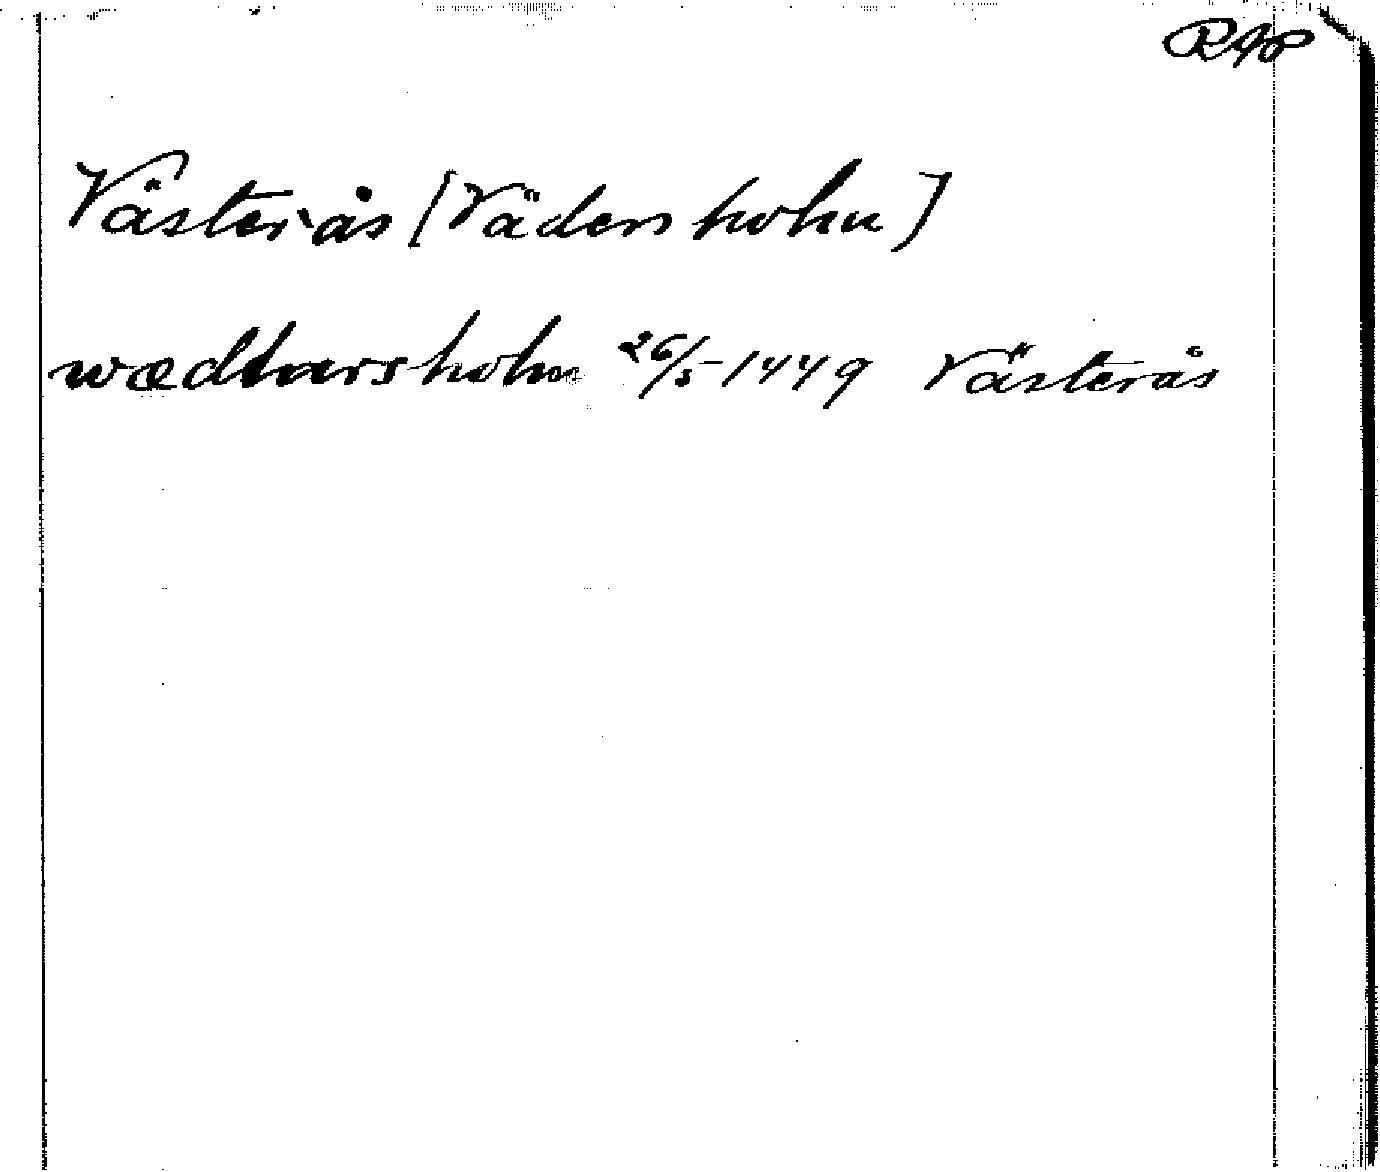 Västerås [Väders holm]
wædhars holm 26/5-1449 Västerås